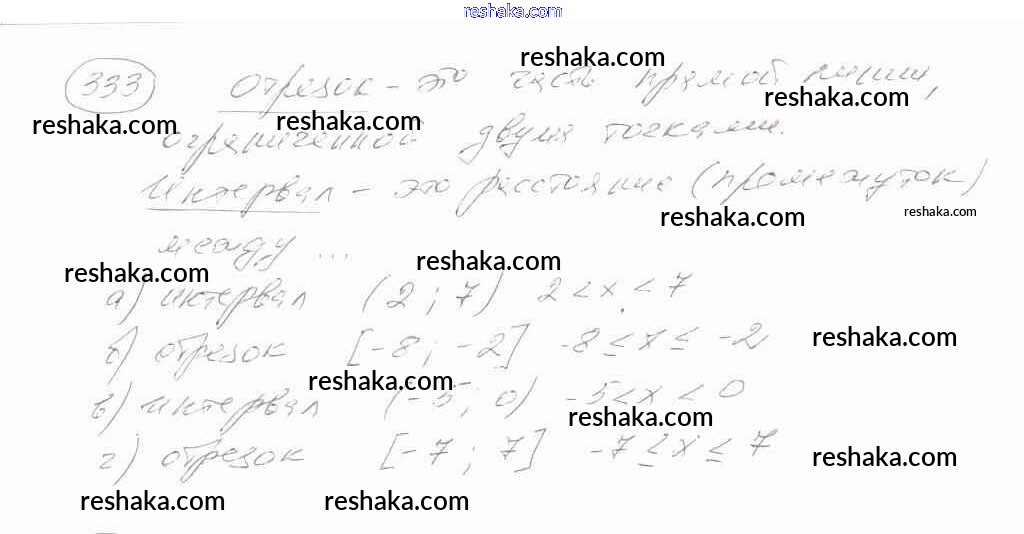 reshaka.com
333 Отрезок - это часть прямой линии,
ограниченной двумя точками.
Интервал - это расстояние (промежуток)
между ...
а) интервал (2; 7) 2 < x < 7
б) отрезок [-8; -2] -8 ≤ x ≤ -2
в) интервал (-5; 0) -5 < x < 0
г) отрезок [-7; 7] -7 ≤ x ≤ 7
reshaka.com
reshaka.com
reshaka.com
reshaka.com
reshaka.com
reshaka.com
reshaka.com
reshaka.com
reshaka.com
reshaka.com
reshaka.com
reshaka.com
reshaka.com
reshaka.com